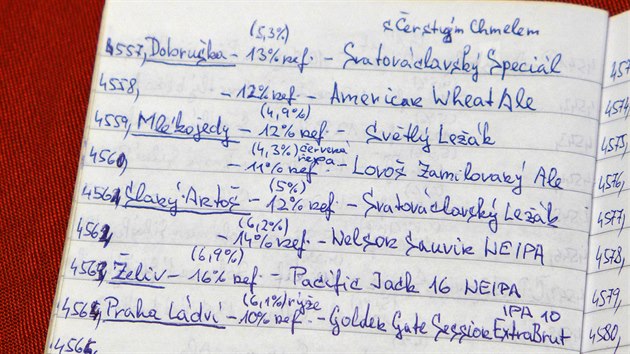 (5,3%) s Čerstvým Chmelem
4557, Dobruška - 13% ref. - Svatováclavský Speciál
4558, - 12% ref. - American Wheat Ale
(4,9%)
4559, Mlékojedy - 12% ref. - Světlý Ležák
(4,3%) červená řepa
4560, - 11% ref. - Lovoš Zamilovaný Ale
(5%)
4561, Slaný Artoš - 12% ref. - Svatováclavský Ležák
(6,2%)
4562, - 14% ref. - Nelson Sauvin NEIPA
(6,9%)
4563, Želiv - 16% ref. - Pacific Jack 16 NEIPA
(6,1%) rýže IPA 10
4564, Praha Ládví - 10% ref. - Golden Gate Session Extra Brut
4565,
457
4574
4575,
4576,
4577,
4578,
4579,
4580,